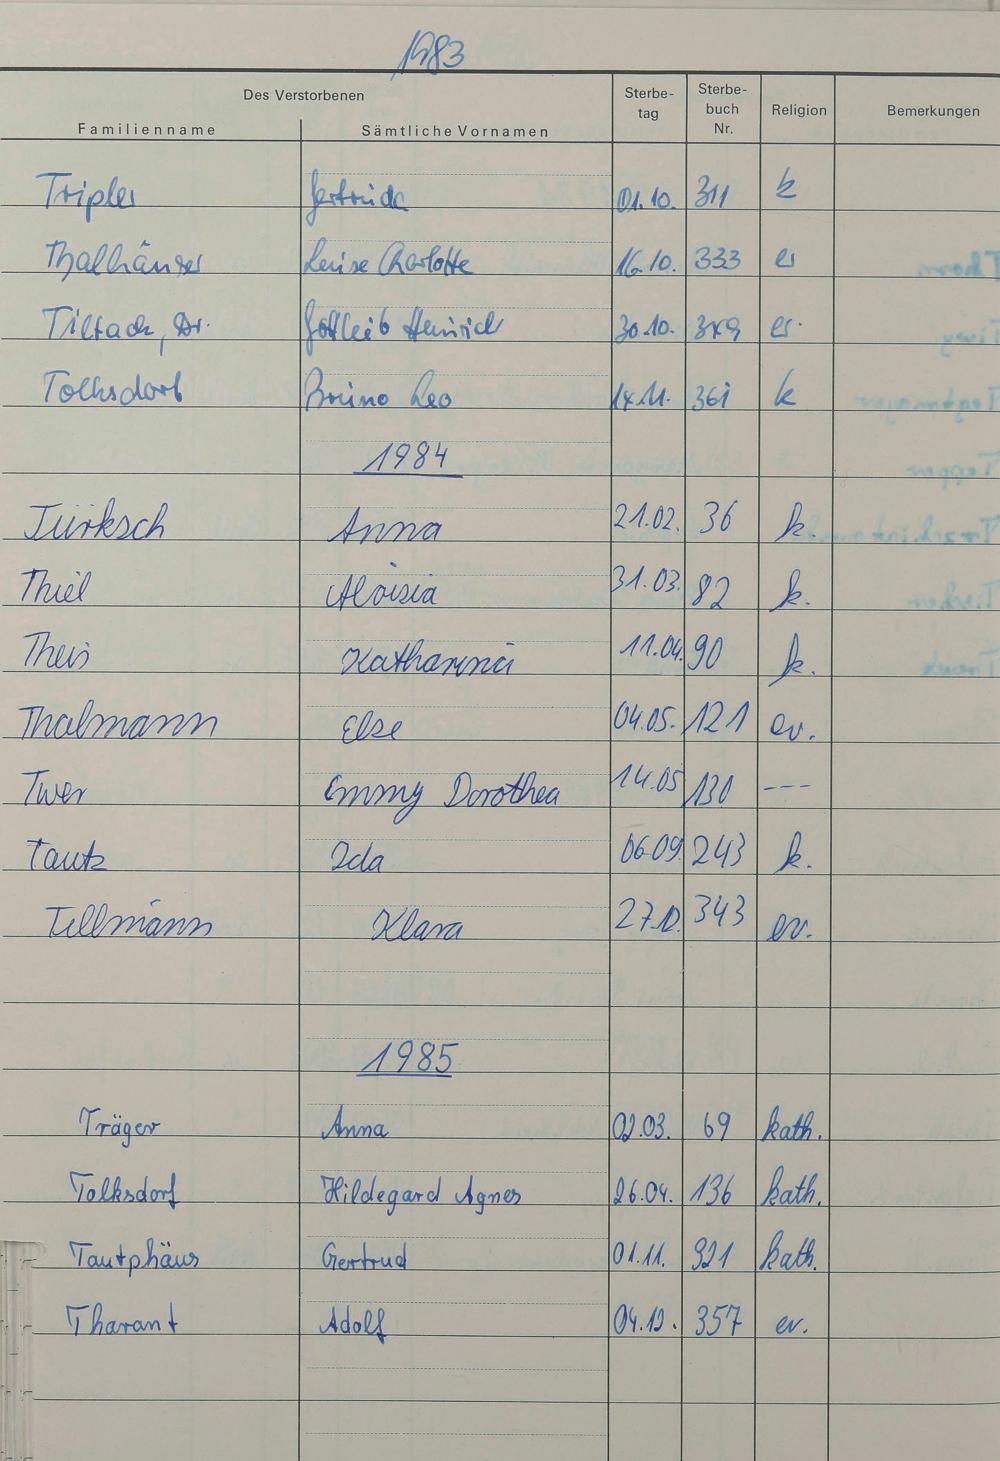 1983
Des Verstorbenen
Sterbe-
tag
Sterbe-
buch
Nr.
Religion
Bemerkungen
Familienname
Sämtliche Vornamen
Tripler Gertrude 01.10. 311 k
Luise Charlotte 16.10. 333 ev
Dr. Gottleib Heinrich 30.10. 349 ev.
Tolksdorf Bruno Leo 14.11. 361 k
1984
Türksch Anna 21.02. 36 k.
Thiel Aloisia 31.03. 82 k.
Theis Katharina 11.04. 90 k.
Thalmann Else 04.05. 121 ev.
Twer Emmy Dorothea 14.05 130 ---
Tautz Ida 06.09. 243 k.
Tillmann Klara 27.12. 343 ev.
1985
Träger Anna 02.03. 69 kath.
Tolksdorf Hildegard Agnes 26.04. 136 kath.
Tautphäus Gertrud 01.11. 321 kath.
Tharant Adolf 04.12. 357 ev.